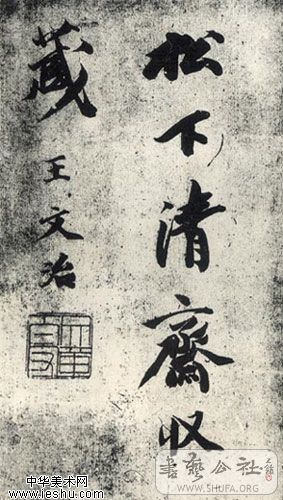 松下清齋収
藏
王文治
中华美术网
www.leshu.com
書藝公社
WWW.SHUFA.ORG